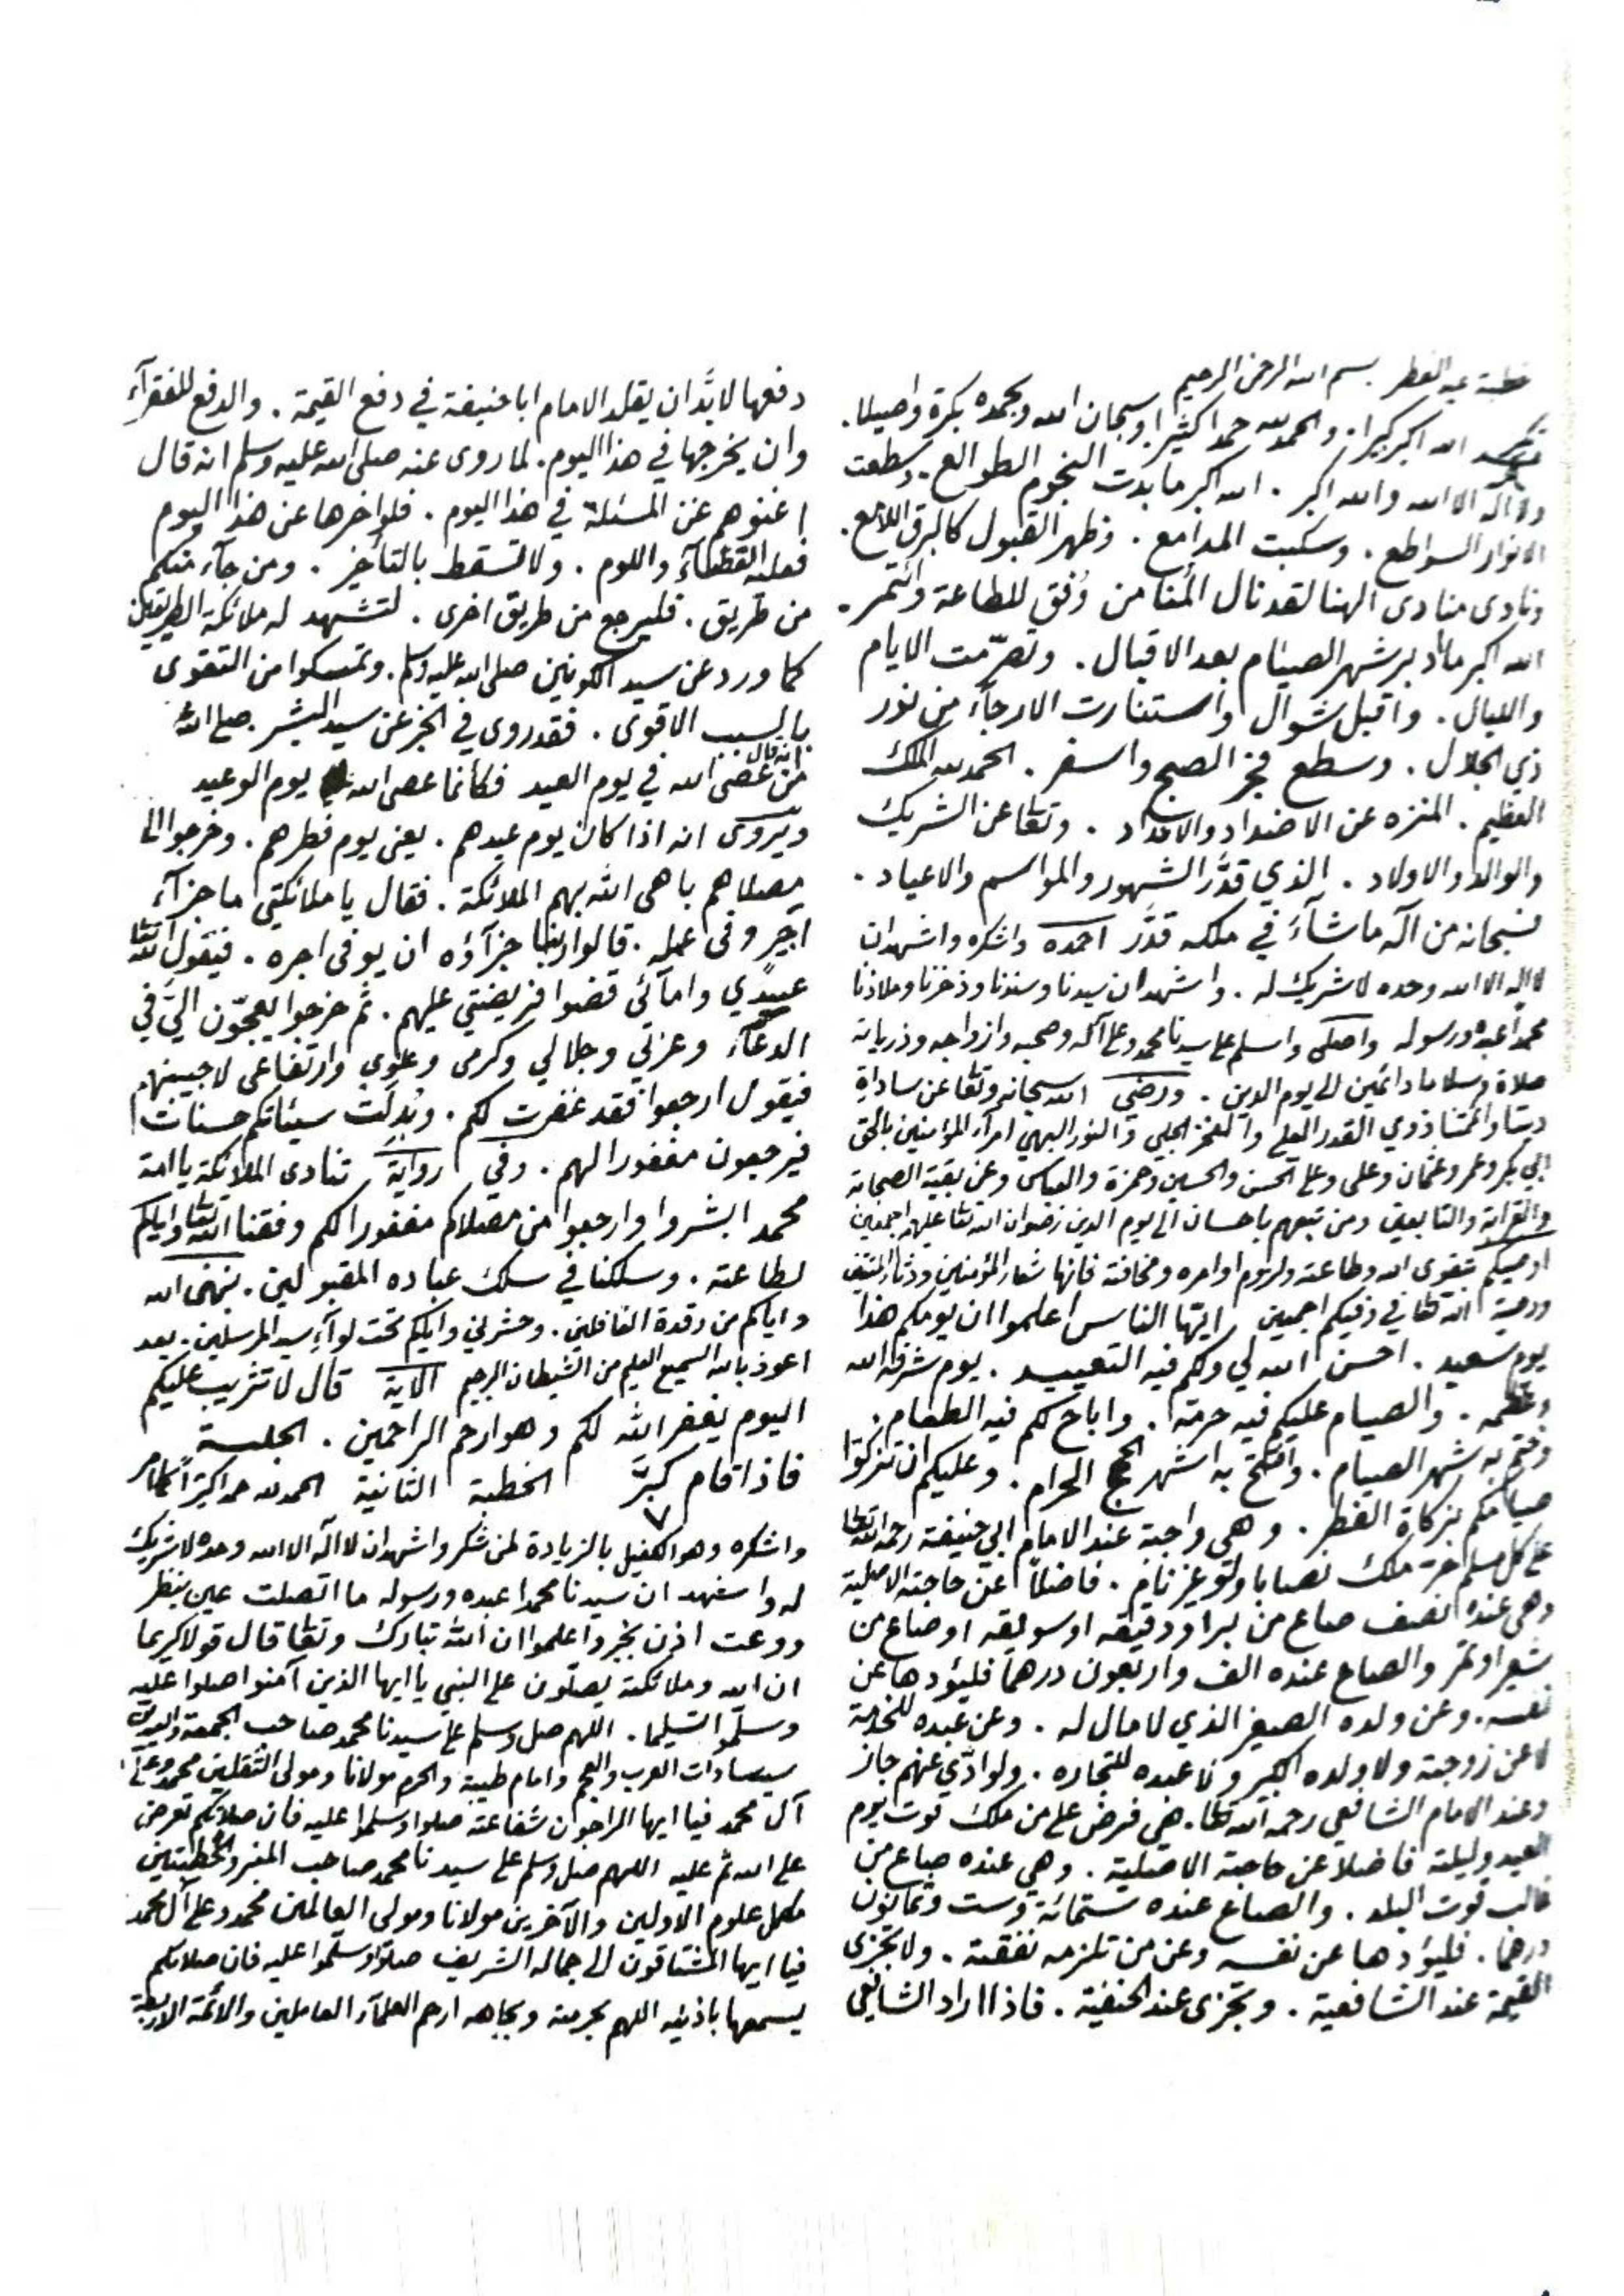 خطبة عيد الفطر بسم الله الرحمن الرحيم
الله اكبر كبيرا. والحمد لله حمدا كثيرا وسبحان الله وبحمده بكرة واصيلا.
ولا اله الا الله والله اكبر . الله اكبر ما بدت النجوم الطوالع . وسطعت
الانوار السواطع . وسكبت المدامع . وظهر القبول كالبرق اللامع .
ونادى منادى الهنا لقد نال المُنا من وُفق للطاعة وأتمر .
الله اكبر ما ادبر شهر الصيام بعد الاقبال . وتصرّمت الايام
والليال . واقبل شوال واستنارت الارجآء من نور
ذي الجلال . وسطع فجر الصبح واسفر . الحمد لله الملك
العظيم . المنزه عن الاضداد والانداد . وتعا عن الشريك
والوالد والاولاد . الذي قدَّر الشهور والمواسم والاعياد .
فسبحانه من آله ما شآءَ في ملكه قدَّر احمده واشكره واشهد ان
لا اله الا الله وحده لا شريك له . واشهد ان سيدنا وسندنا وذخرنا وملاذنا
محمداً عبده ورسوله واصلى واسلم على سيدنا محمد وعلى آله وصحبه وازواجه وذرياته
صلاة وسلاما دائمين الى يوم الدين . ورضي الله سبحانه وتعا عن ساداة
ديننا وائمتنا ذوي القدر العلي والفخر الجلي والنور البهي امرآء المؤمنين بالحق
ابي بكر وعمر وعثمان وعلى وعلى الحسن والحسين وحمزة والعباس وعن بقية الصحابة
والقرابة والتابعين ومن تبعهم باحسان الى يوم الدين رضوان الله تعا عليهم اجمعين
اوصيكم بتقوى الله وطاعته ولزوم اوامره ومخافته فانها شعار المؤمنين ودثار المتقين
ووصية الله تعا في وفيكم اجمعين ايها الناس اعلموا ان يومكم هذا
يوم سعيد . احسن الله لي ولكم فيه التعييد . يوم شرفه الله
وعظمه . والصيام عليكم فيه حرمه . واباح لكم فيه الطعام .
وختم به شهر الصيام . وافتتح به اشهر الحج الحرام . وعليكم ان تزكوا
صيامكم بزكاة الفطر . وهي واجبة عند الامام ابي حنيفة رحمه الله تعا
على كل مسلم حر ملك نصابا ولو غير نام . فاضلاً عن حاجته الاصلية
وهي عنده نصف صاع من بر او دقيقه او سويقه او صاع من
شعير او تمر والصاع عنده الف واربعون درهما فليؤدها عن
نفسه . وعن ولده الصغير الذي لا مال له . وعن عبده للخدمة
لا عن زوجته ولا ولده الكبير ولا عبده للتجاره . ولو ادّي عنهم جاز
وعند الامام الشافعي رحمه الله تعا . هي فرض على من ملك قوت يوم
العيد وليلته فاضلا عن حاجته الاصلية . وهي عنده صاع من
غالب قوت البلد . والصاع عنده ستمائة وست وثمانون
درهما . فليؤدها عن نفسه وعن من تلزمه نفقته . ولا تجزى
القيمة عند الشافعية . وتجزى عند الحنفية . فاذا اراد الشافعي
دفعها لا بدَّ ان يقلد الامام ابا حنيفة في دفع القيمة . والدفع للفقرآء
وان يخرجها في هذا اليوم . لما روى عنه صلى الله عليه وسلم انه قال
اغنوهم عن المسئلة في هذا اليوم . فلو اخرها عن هذا اليوم
فعليه القضآء واللوم . ولا تسقط بالتأخير . ومن جآء منكم
من طريق . فليرجع من طريق اخرى . لتشهد له ملائكة الطريقين
كما ورد عن سيد الكونين صلى الله عليه وسلم . وتمسكوا من التقوى
بالسبب الاقوى . فقد روى في الخبر عن سيد البشر صلى الله
انه قال
من عصى الله في يوم العيد فكانما عصى الله يوم الوعيد
ويروى انه اذا كان يوم عيدهم . يعني يوم فطرهم . وخرجوا الى
مصلاهم باهى الله بهم الملائكة . فقال يا ملائكتي ما جزآء
اجير وفى عمله . قالوا ربنا جزآؤه ان يوفى اجره . فيقول الله تعا
عبيدي وامآئي قضوا فريضتي عليهم . ثم خرجوا يعجّون اليّ في
الدعآء وعزتي وجلالي وكرمى وعلوي وارتفاعى لاجيبنهم
فيقول ارجعوا فقد غفرت لكم . وبُدلَت سيئاتكم حسنات
فيرجعون مغفورا لهم . وفي رواية تنادى الملائكة يا امة
محمد ابشروا وارجعوا من مصلاكم مغفورا لكم وفقنا الله تعا واياكم
لطاعته . وسلكنا في سلك عباده المقبولين . نبهنى الله
واياكم من رقدة الغافلين . وحشرني واياكم تحت لوآء سيد المرسلين . بعد
اعوذ بالله السميع العليم من الشيطان الرجيم الاية قال لا تثريب عليكم
اليوم يغفر الله لكم وهو ارحم الراحمين . الجلسة
فاذا قام كبَّر ٧ الخطبة الثانية الحمد لله حمدا كثيرا كما امر
واشكره وهو الكفيل بالزيادة لمن شكر واشهد ان لا اله الا الله وحده لا شريك
له واشهد ان سيدنا محمدا عبده ورسوله ما اتصلت عين بنظر
ووعت اذن بخبر واعلموا ان الله تبارك وتعا قال قولا كريما
ان الله وملائكته يصلّون على النبي يا ايها الذين آمنوا صلوا عليه
وسلّموا تسليما . اللهم صل وسلم على سيدنا محمد صاحب الجمعة والعيدين
سيد سادات العرب والعجم وامام طيبة والحرم مولانا ومولى الثقلين محمد وعلى
آل محمد فيا ايها الراجون شفاعته صلوا وسلموا عليه فان صلاتكم تعرض
على الله ثم عليه اللهم صل وسلم على سيدنا محمد صاحب المنبر والخطبتين
مكمل علوم الاولين والآخرين مولانا ومولى العالمين محمد وعلى آل محمد
فيا ايها المشتاقون الى جماله الشريف صلوا وسلموا عليه فان صلاتكم
يسمعها باذنيه اللهم بحرمته وبجاهه ارحم العلمآء العاملين والائمة الاربعة